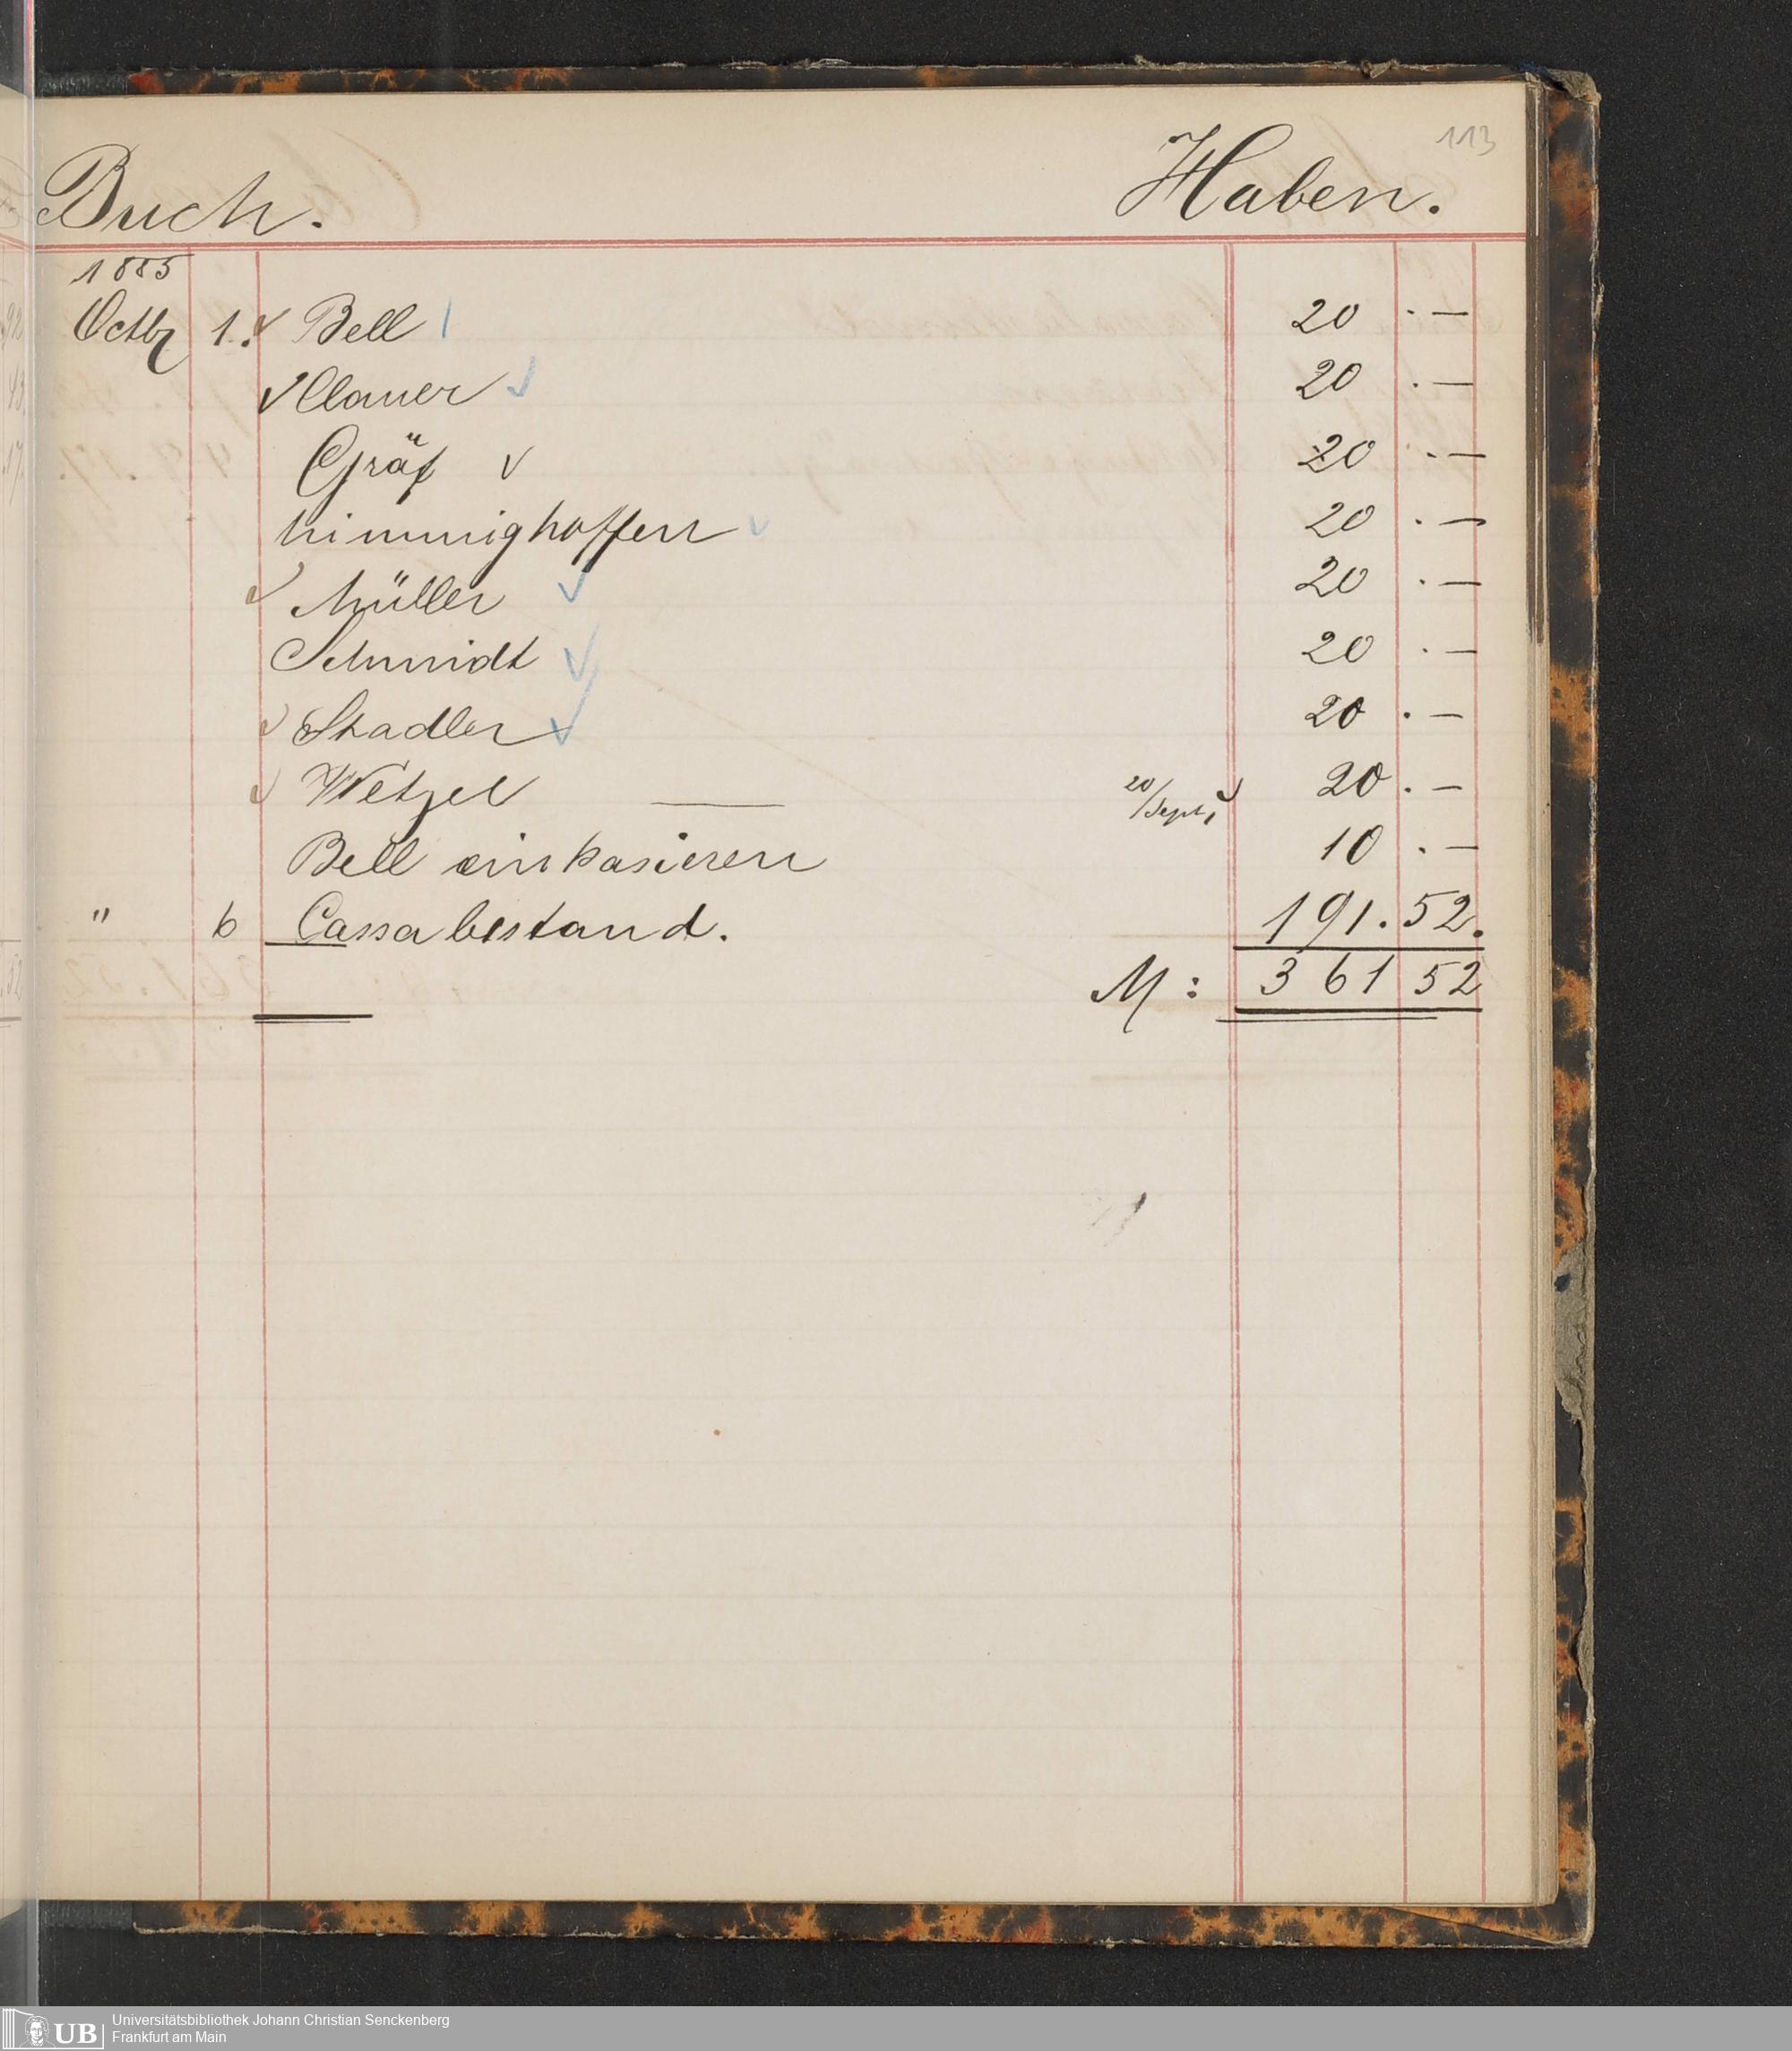 113
Buch. Haben.
1885
Octbr 1. Bell 20 . —
Clauer 20 . —
Gräf 20 . —
Mimmighoffen 20 . —
Müller 20 . —
Schmidt 20 . —
Stadler 20 . —
Wetzel — 20/Sept. 20 . —
Bell einkasieren 10 . —
" 6 Cassabestand. 191. 52.
M: 361 52
UB Universitätsbibliothek Johann Christian Senckenberg
Frankfurt am Main